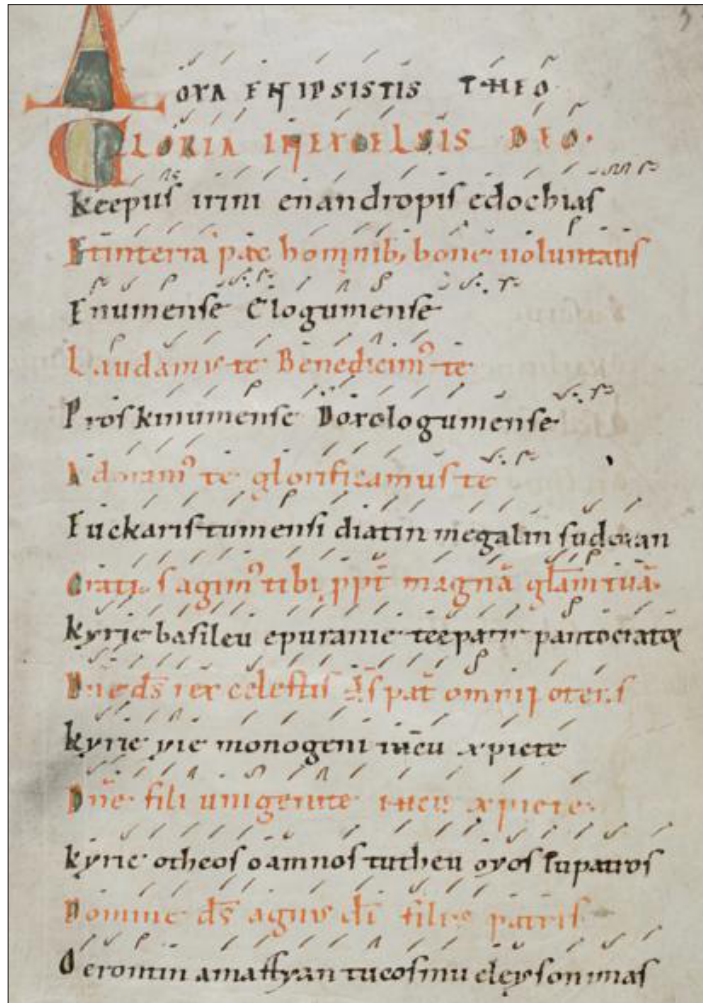 DOXA EN IPSISTIS THEO
GLORIA IN EXCELSIS DEO.
Keepus irini enandropis edochias
Et in terra pax hominib; bone voluntatis
Enumense Elogumense
Laudamus te Benedicim᾽ te
Proskinumense Doxologumense
Adoram᾽ te glorificamus te
Euckaristumensi diatin megalin sudoxan
Gratias agim᾽ tibi ppt̄ magnā gl̄am tuā.
kyrie basileu epuranie teepatir pantocrator
Dn̄e ds̄ rex celestis ds̄ pat̄ omnipotens
kyrie yie monogeni ih̄cu xpiete
Dn̄e fili unigenite ihcu xpiete.
kyrie otheos o amnos tutheu oyos tupatros
Domine ds̄ agnus dī filius patris
O eromin amartyan tucosmu eleyson imas